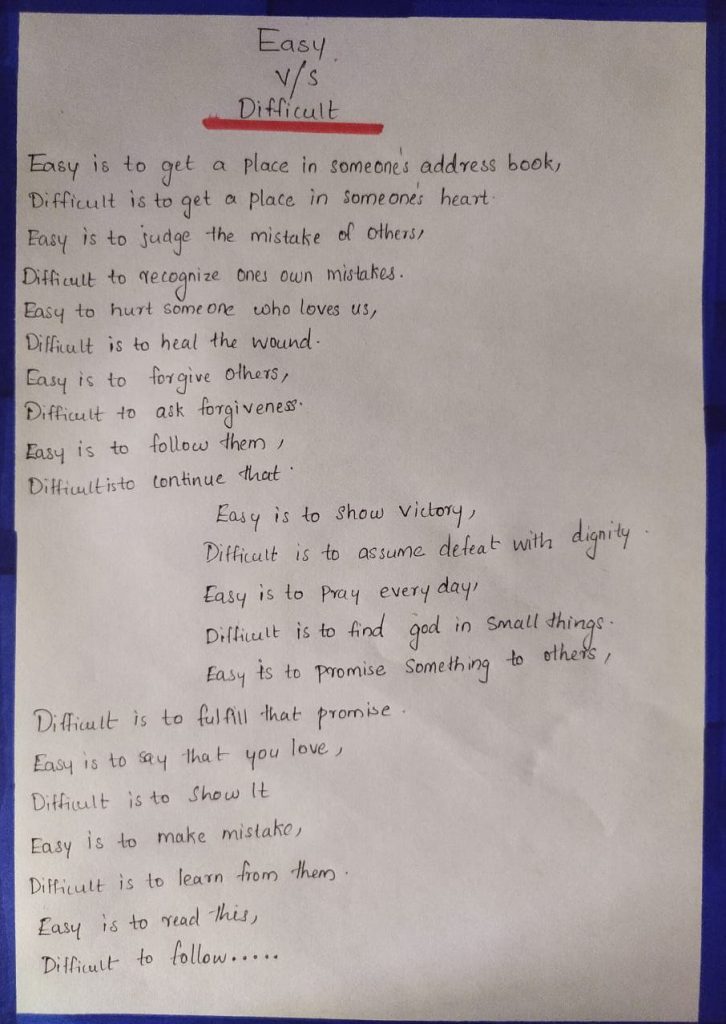 Easy
V/S
Difficult
Easy is to get a place in someone's address book,
Difficult is to get a place in someone's heart.
Easy is to judge the mistake of others,
Difficult to recognize ones own mistakes.
Easy to hurt someone who loves us,
Difficult is to heal the wound.
Easy is to forgive others,
Difficult to ask forgiveness.
Easy is to follow them,
Difficult is to continue that.
Easy is to show victory,
Difficult is to assume defeat with dignity.
Easy is to pray every day,
Difficult is to find god in small things.
Easy is to promise something to others,
Difficult is to fulfill that promise.
Easy is to say that you love,
Difficult is to show It
Easy is to make mistake,
Difficult is to learn from them.
Easy is to read this,
Difficult to follow.....